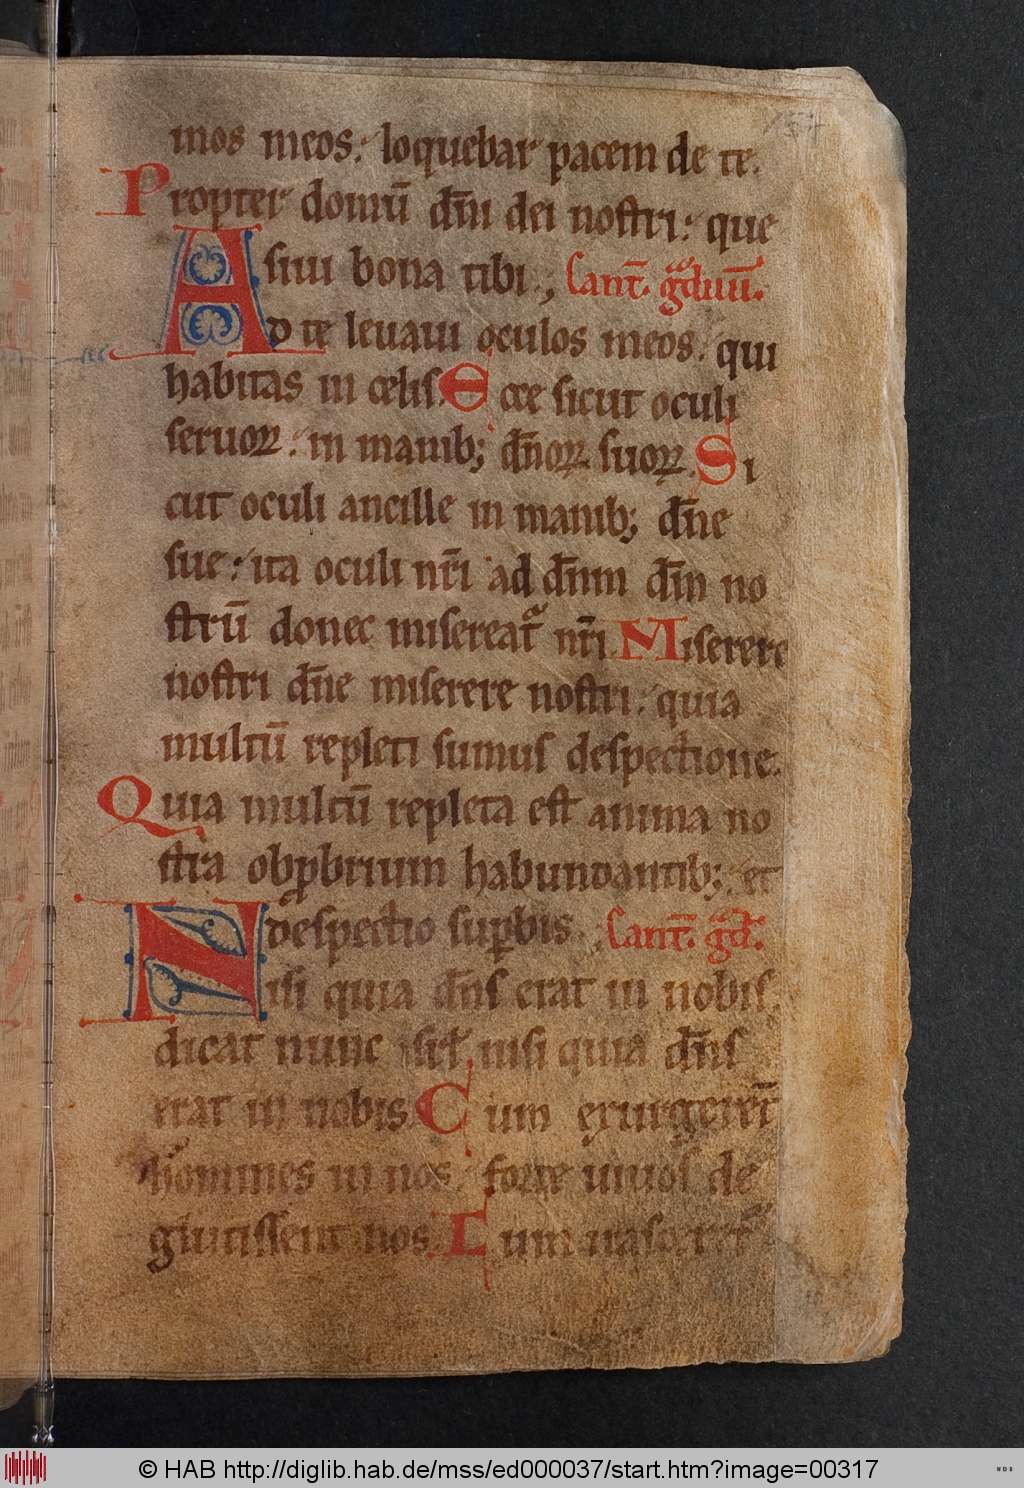 157
mos meos. loquebar pacem de te.
Propter domū dn̄i dei nostri: que
siui bona tibi. Cant̄. gͣduū.
Ad te leuaui oculos meos. qui
habitas in celis. Ecce sicut oculi
seruoꝝ: in manib; dn̄oꝝ suoꝝ. Si
cut oculi ancille in manib; dn̄e
sue: ita oculi nr̄i ad dn̄m dm̄ no
strū donec misereatᷣ nr̄i. Miserere
nostri dn̄e miserere nostri: quia
multū repleti sumus despectione.
Quia multū repleta est anima no
stra obꝓbrium habundantib; et
despectio suꝑbis. Cant̄. gͣd.
Nisi quia dn̄s erat in nobis.
dicat nunc isrl̄ nisi quia dn̄s
erat in nobis. Cum exurgerēt
homines in nos. forte uiuos de
glutissent nos. Cum
© HAB http://diglib.hab.de/mss/ed000037/start.htm?image=00317